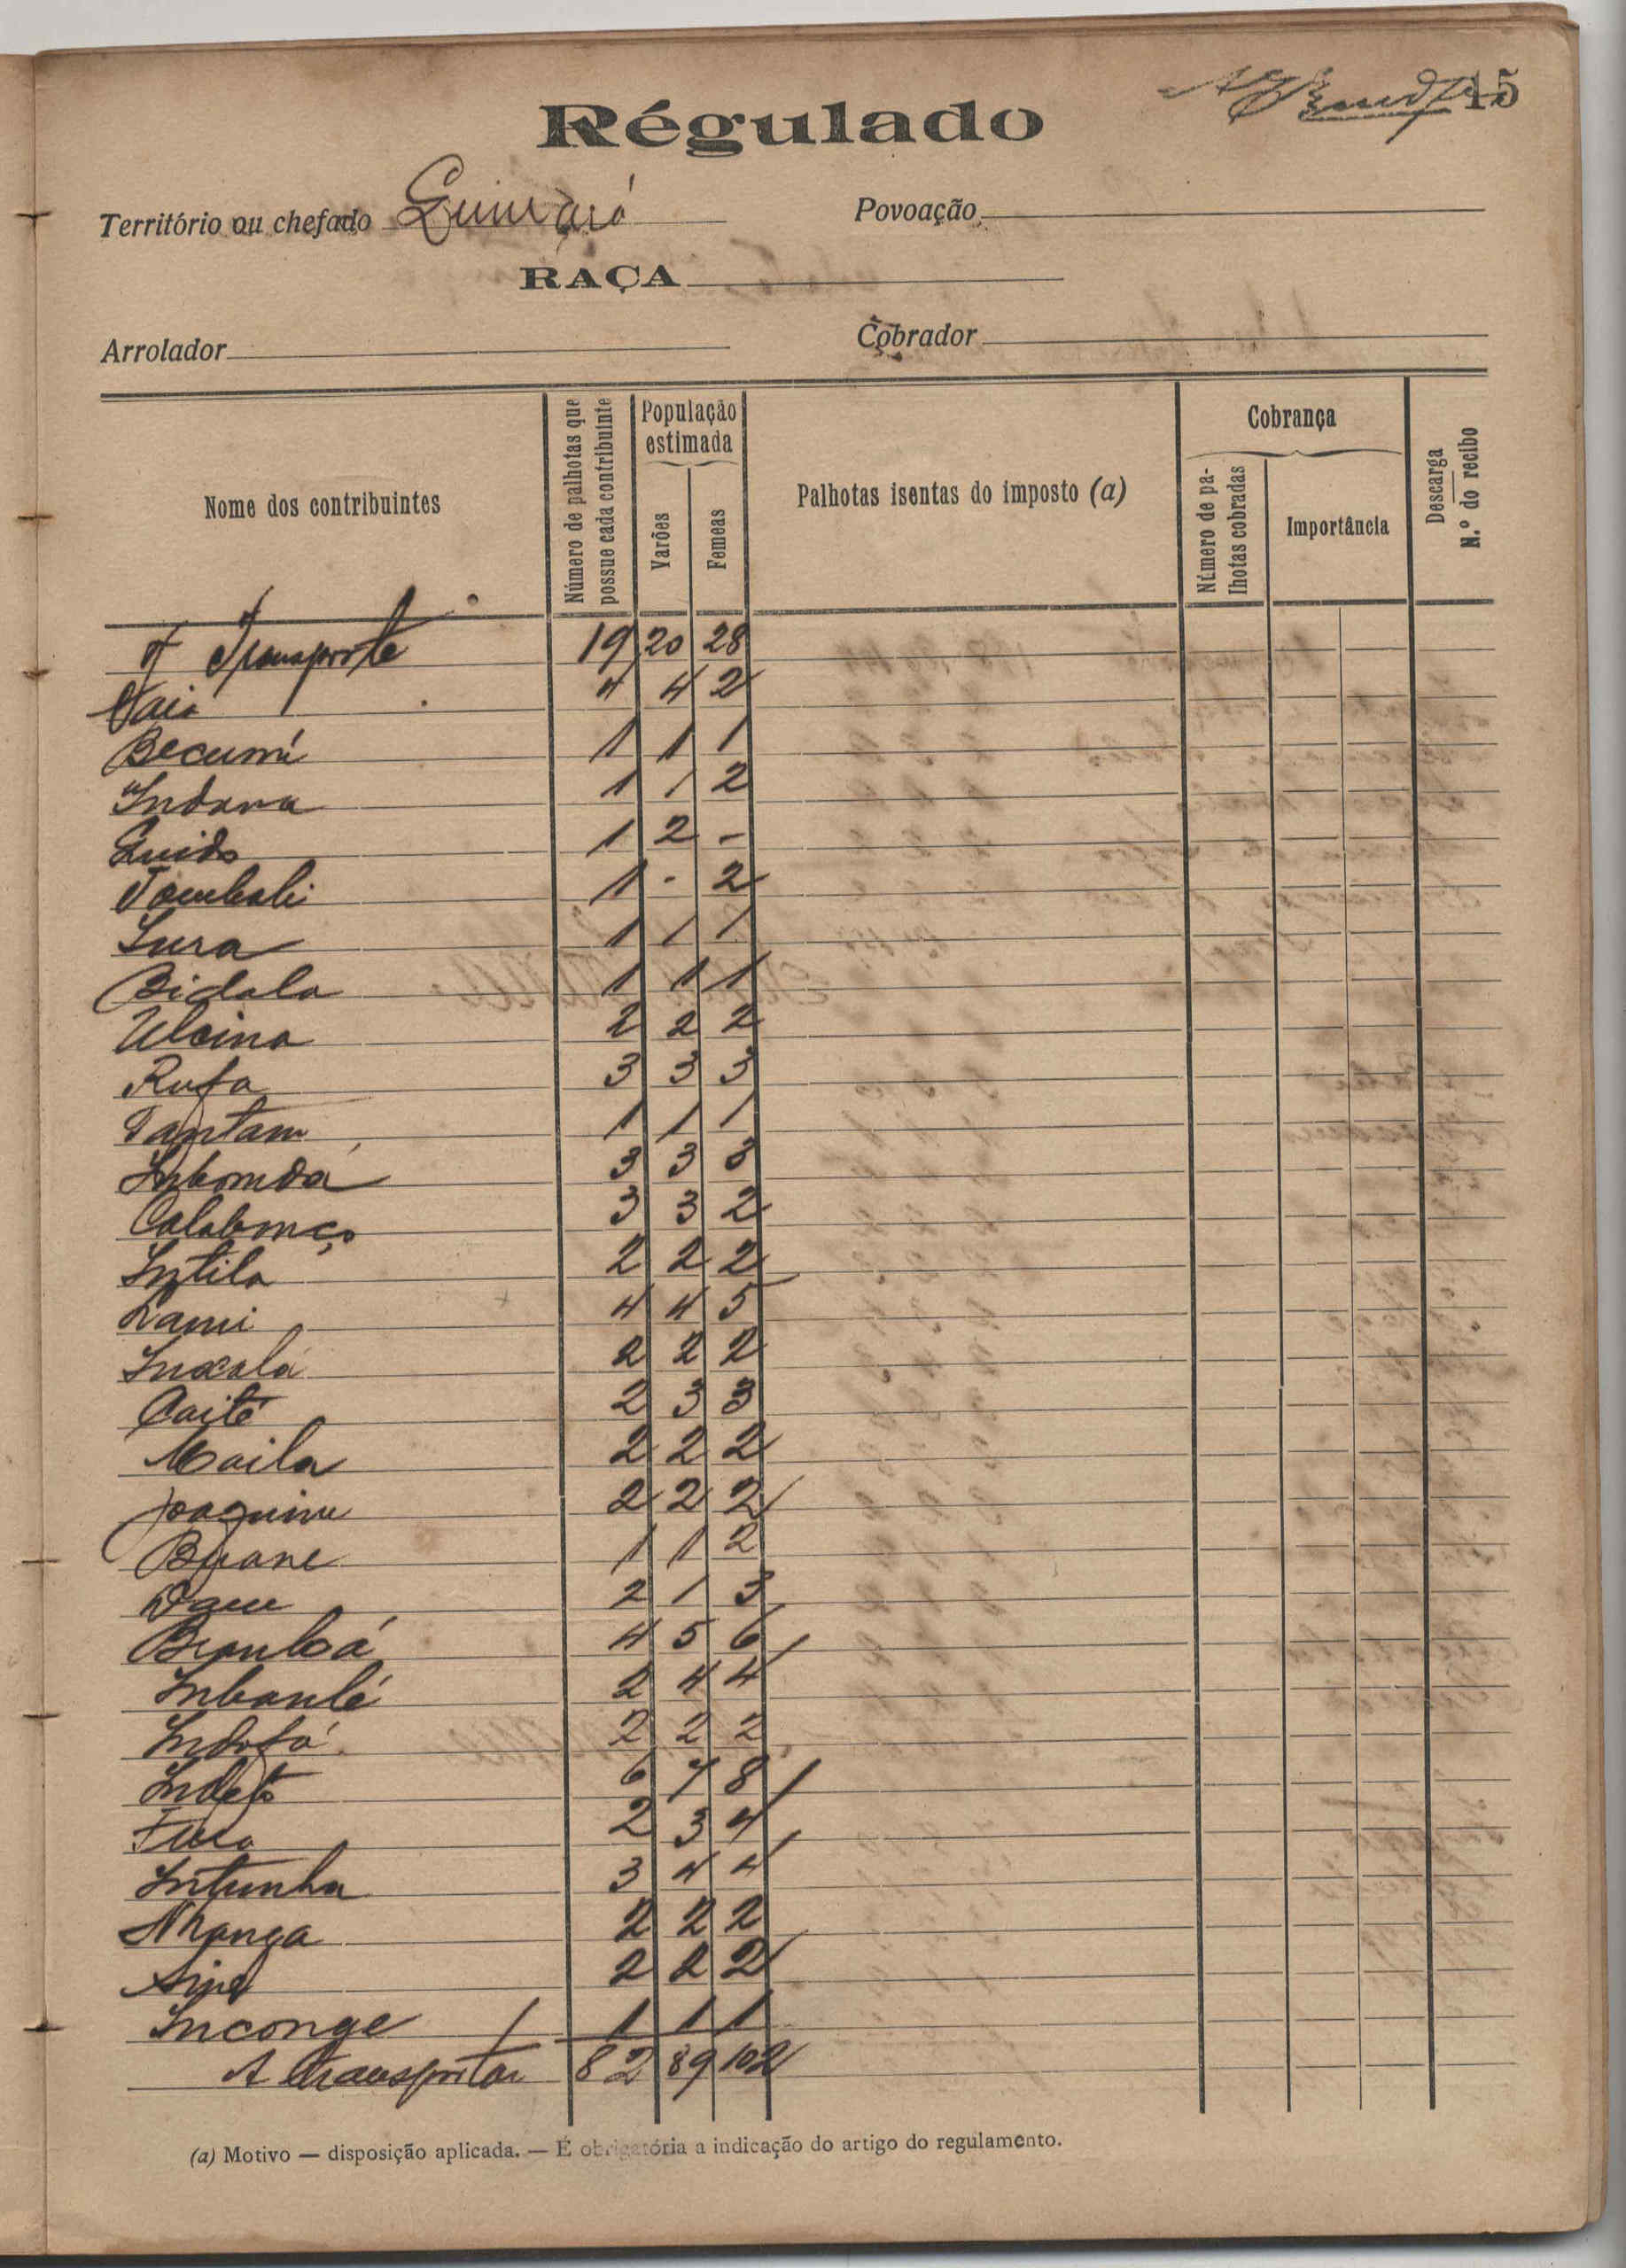 15
Régulado
Território ou chefado
Povoação
RAÇA
Arrolador
Cobrador
Nome dos contribuintes
Número de palhotas que possue cada contribuinte
População estimada
Varões
Femeas
Palhotas isentas do imposto (a)
Cobrança
Número de palhotas cobradas
Importância
Descarga
N.º do recibo
Transporte 19 20 28
4 4 2
Becumé 1 1 1
Indana 1 1 2
Quido 1 2 -
Tombali 1 - 2
Sura 1 1 1
Bidala 1 1 1
Ulcina 2 2 2
Rufa 3 3 3
Tantam 1 1 1
3 3 3
3 3 2
Intila 2 2 2
Lami 4 4 5
Inxalá 2 2 2
Caité 2 3 3
Maila 2 2 2
Joaquim 2 2 2
1 1 2
2 1 3
4 5 6
Inbanlé 2 4 4
Indofá 2 2 2
6 7 8
2 3 4
Intunha 3 4 4
Nhanga 2 2 2
2 2 2
Inconge 1 1 1
A transportar 82 89 102
(a) Motivo — disposição aplicada. — É obrigatória a indicação do artigo do regulamento.